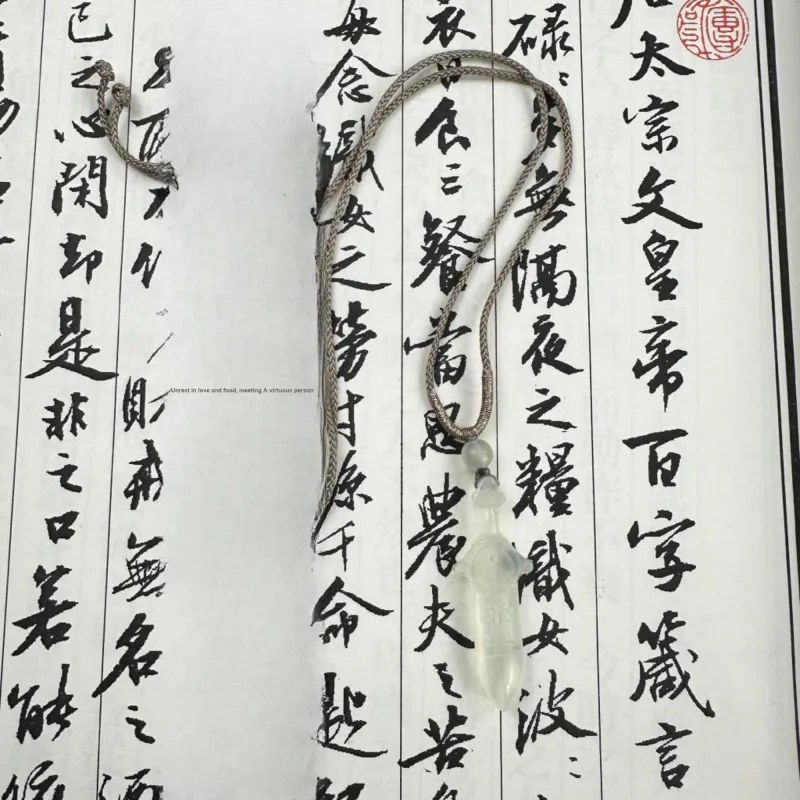 太宗文皇帝百字箴言
碌〻多無隔夜之糧織女波〻
衣日食三餐當思農夫之苦
每念織女之勞寸絲千命
Unrest in love and food, meeting A virtuous person
財戒無名之酒
己之心閑却是非之口若能依